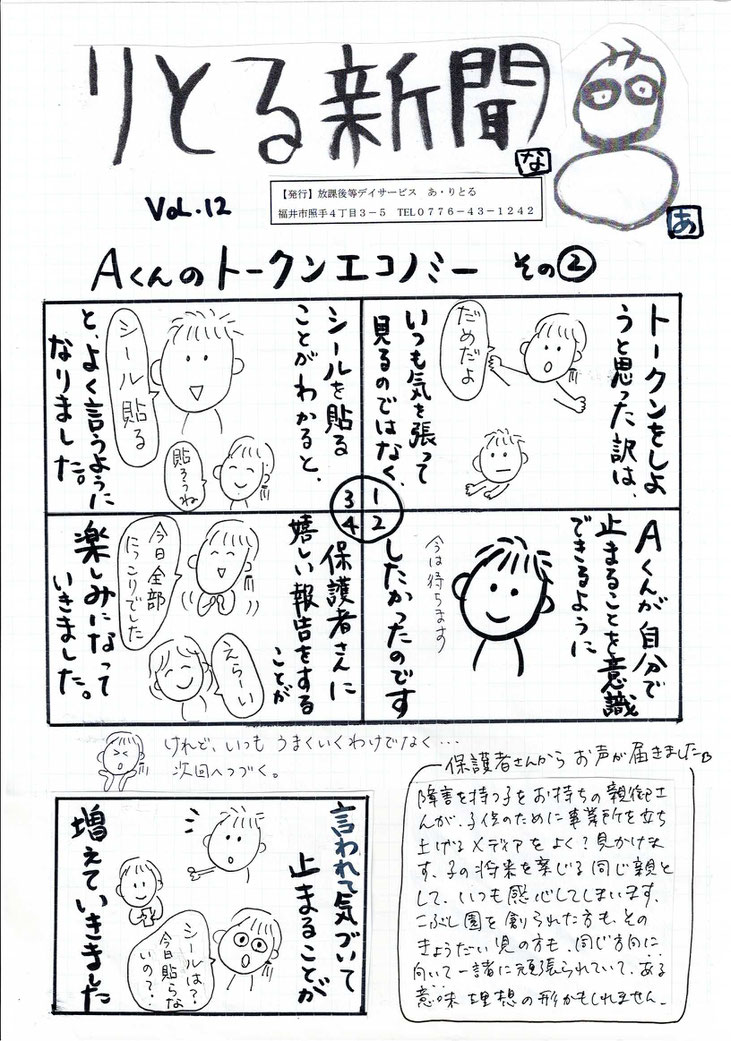 りとる新聞
な
あ
Vol.12
【発行】放課後等デイサービス あ・りとる
福井市照手4丁目3-5 TEL0776-43-1242
Aくんのトークンエコノミー その②
トークンをしよ
うと思った訳は、
だめだよ
いつも気を張って
見るのではなく、
1
2
3
4
Aくんが自分で
止まることを意識
できるように
今は待ちます
したかったのです
シールを貼る
ことがわかると、
シール貼る
貼ろうね
と、よく言うように
なりました。
保護者さんに
嬉しい報告をする
ことが
今日全部
にっこりでした
えらい
楽しみになって
いきました。
けれど、いつも うまくいくわけでなく…
次回へつづく。
言われて気づいて
止まることが
シールは?
今日貼らな
いの?
増えていきました
保護者さんから お声が届きました
障害を持つ子をお持ちの親御さ
んが、子供のために事業所を立ち
上げるメディアをよく?見かけま
す。子の将来を案じる同じ親と
して、いつも感心してしまいます。
こぶし園を創られた方も、その
きょうだい児の方も、同じ方向に
向いて一緒に頑張られていて、ある
意味 理想の形かもしれません。